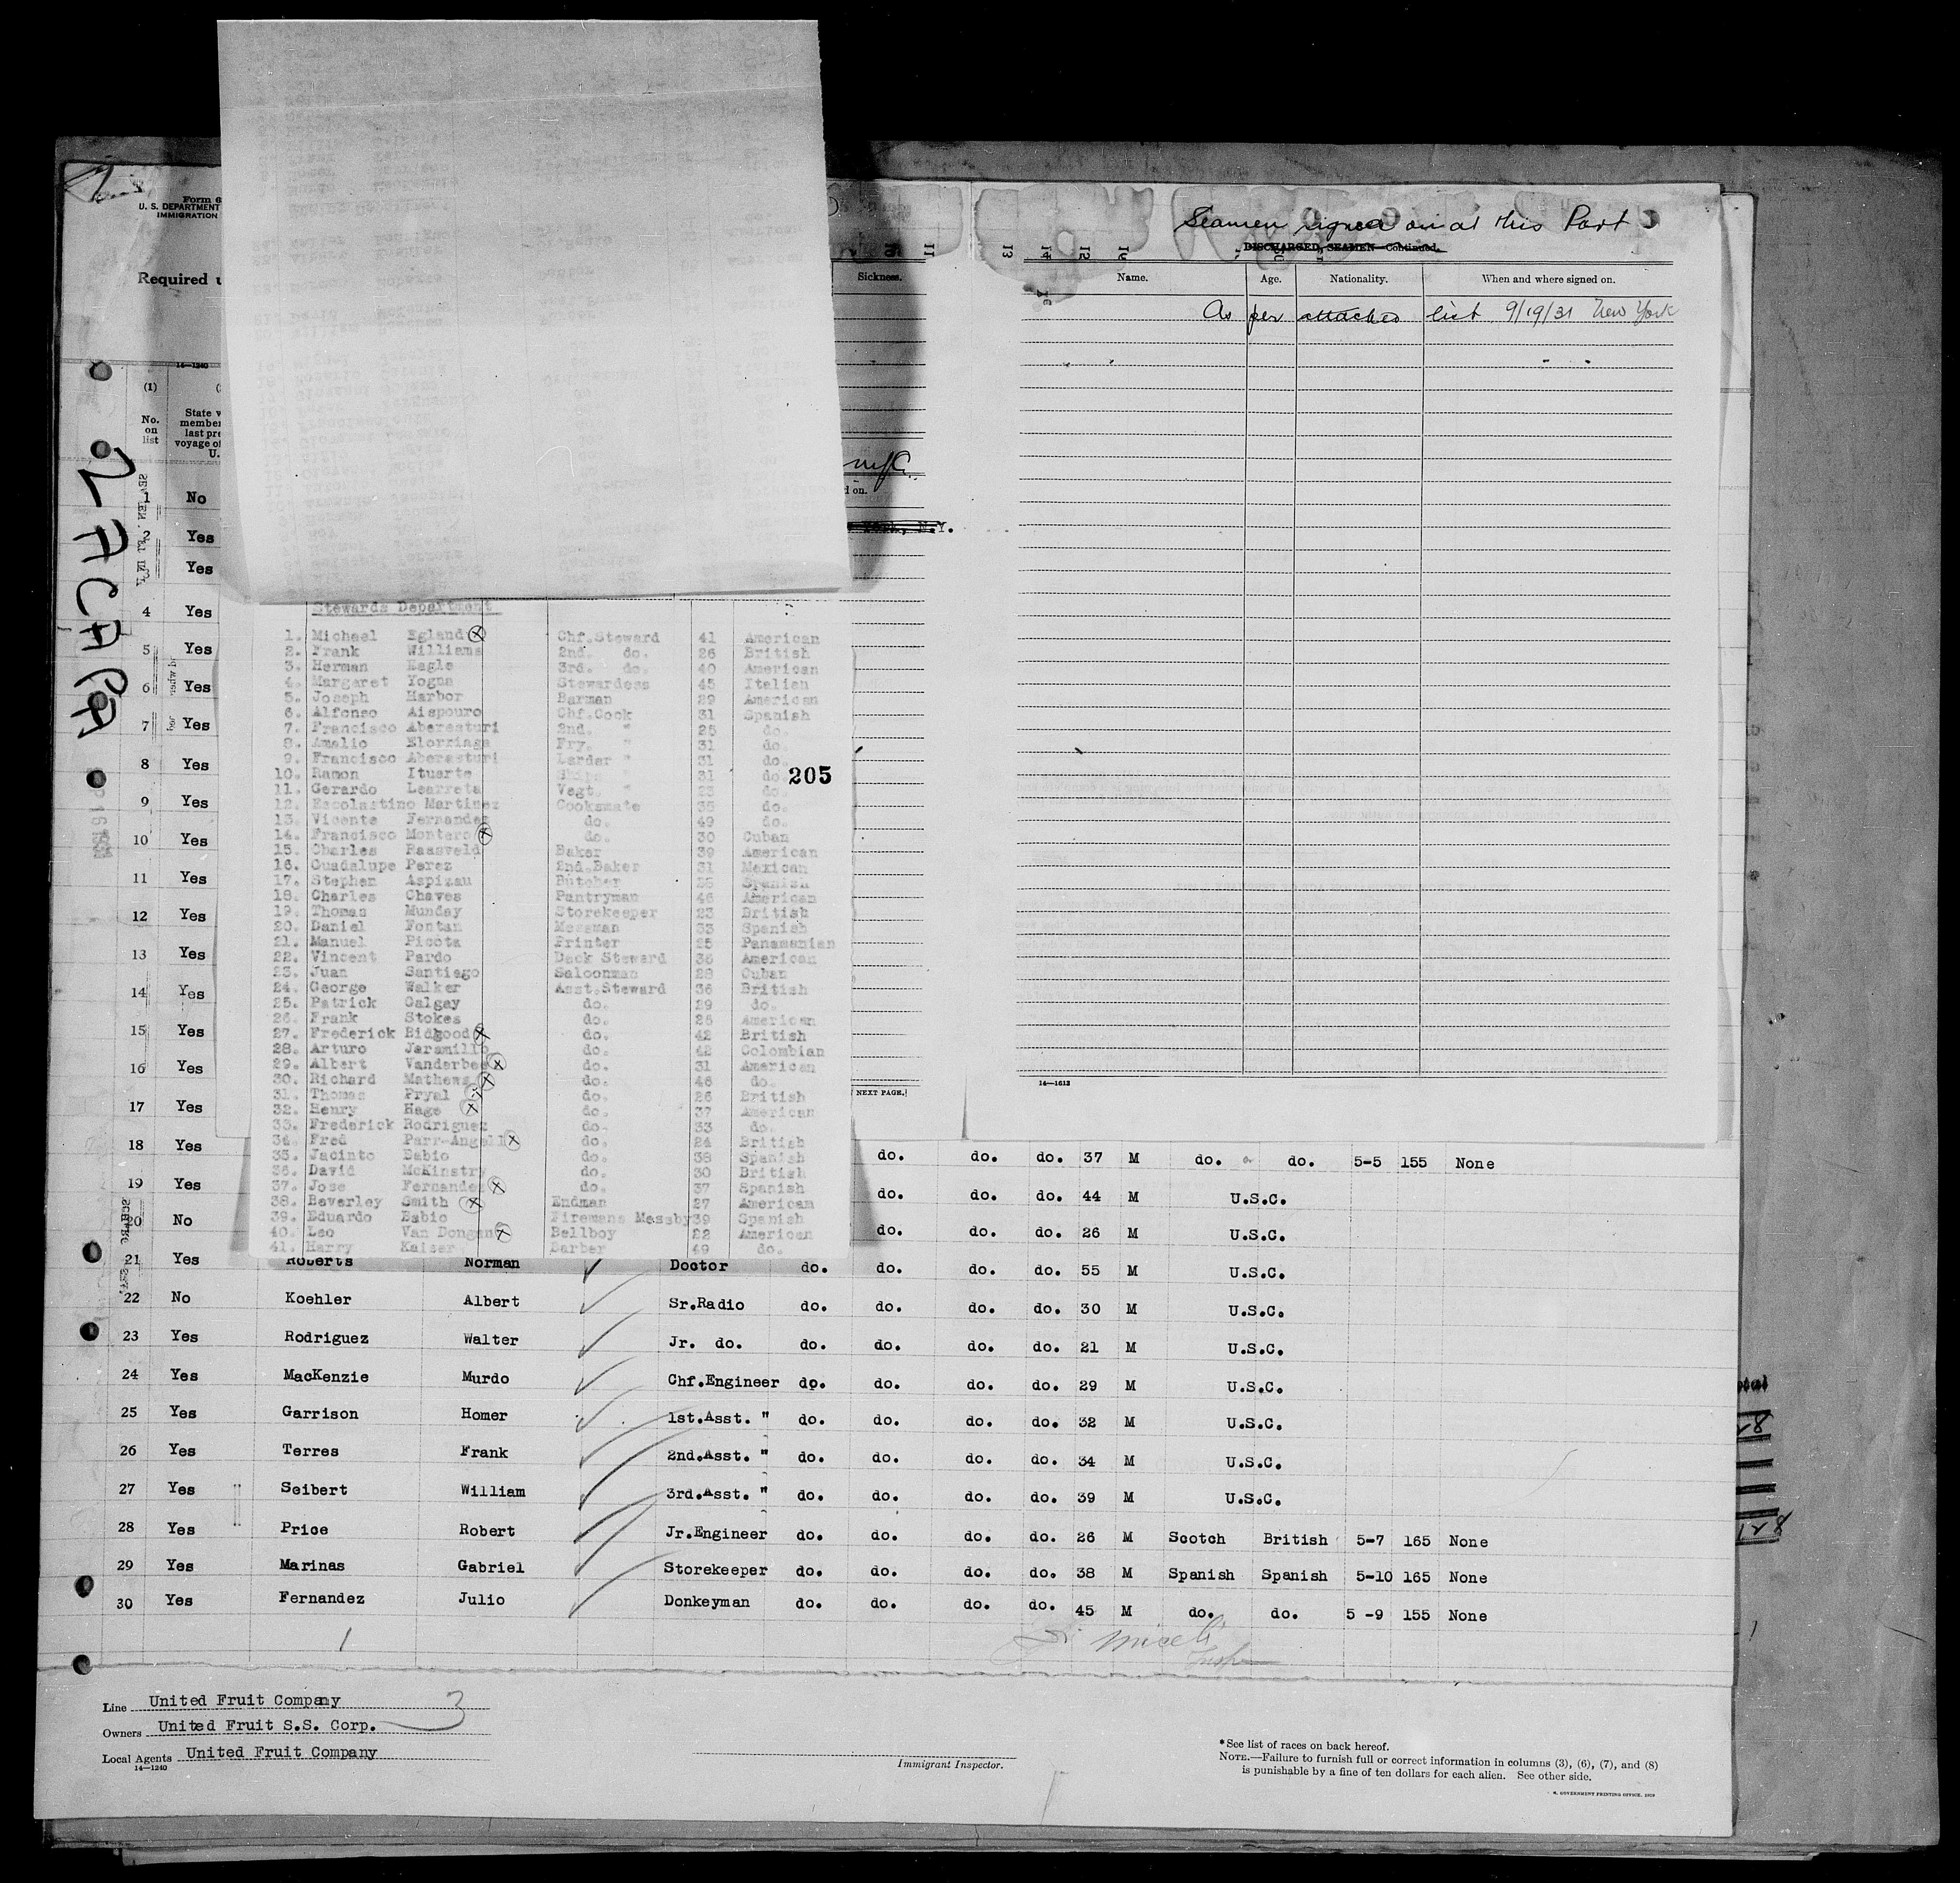 Form 6
U. S. DEPARTMENT
IMMIGRATION
Required u
14—1240
(1)
No. on list
State v
member
last pre
voyage of
U.
ZACAPA
Sickness.
Seamen signed on at this Port
DISCHARGED, SEAMEN—Continued.
Name. Age. Nationality. When and where signed on.
As per attached list 9/19/31 New York
d on.
York, N.Y.
14—1613
NEXT PAGE.
205
Stewards Department
1. Michael Egland Chf.Steward 41 American
2. Frank Williams 2nd. do. 26 British
3. Herman Eagle 3rd. do. 40 American
4. Margaret Yogna Stewardess 45 Italian
5. Joseph Harbor Barman 29 American
6. Alfonso Aispouro Chf.Cook 31 Spanish
7. Francisco Aberasturi 2nd. " 25 do.
8. Amalio Elorriaga Fry. " 31 do.
9. Francisco Aberasturi Larder " 31 do.
10. Ramon Ituarte " 31 do.
11. Gerardo Learreta Vegt. " 23 do.
12. Escolastino Martinez Cooksmate 35 do.
13. Vicente Fernandez do. 49 do.
14. Francisco Montero do. 30 Cuban
15. Charles Raasveld Baker 39 American
16. Guadalupe Perez 2nd.Baker 31 Mexican
17. Stephen Aspizau Butcher Spanish
18. Charles Chaves Pantryman 46 American
19. Thomas Munday Storekeeper 23 British
20. Daniel Fontan Messman 33 Spanish
21. Manuel Picota Printer 25 Panamanian
22. Vincent Pardo Deck Steward 36 American
23. Juan Santiago Saloonman 28 Cuban
24. George Walker Asst.Steward 36 British
25. Patrick Galgay do. 29 do.
26. Frank Stokes do. 25 American
27. Frederick Bidgood do. 42 British
28. Arturo Jaramillo do. 42 Colombian
29. Albert Vanderbee do. 31 American
30. Richard Mathews do. 46 do.
31. Thomas Pryal do. 26 British
32. Henry Hage do. 37 American
33. Frederick Rodriguez do. 33 do.
34. Fred Parr-Angell do. 24 British
35. Jacinto Babio do. 38 Spanish
36. David McKinstry do. 30 British
37. Jose Fernandez do. 37 Spanish
38. Beverley Smith Endman 27 American
39. Eduardo Babio Firemans Messby 39 Spanish
40. Leo Van Dongen Bellboy 22 American
41. Harry Kaiser Barber 49 do.
1 No
2 Yes
3 Yes
4 Yes
5 Yes
6 Yes
7 Yes
8 Yes
9 Yes
10 Yes
11 Yes
12 Yes
13 Yes
14 Yes
15 Yes
16 Yes
17 Yes
18 Yes do. do. do. 37 M do. do. 5-5 155 None
19 Yes do. do. do. 44 M U.S.C.
20 No do. do. do. 26 M U.S.C.
21 Yes Roberts Norman Doctor do. do. do. do. 55 M U.S.C.
22 No Koehler Albert Sr.Radio do. do. do. do. 30 M U.S.C.
23 Yes Rodriguez Walter Jr. do. do. do. do. do. 21 M U.S.C.
24 Yes MacKenzie Murdo Chf.Engineer do. do. do. do. 29 M U.S.C.
25 Yes Garrison Homer 1st.Asst. " do. do. do. do. 32 M U.S.C.
26 Yes Terres Frank 2nd.Asst. " do. do. do. do. 34 M U.S.C.
27 Yes Seibert William 3rd.Asst. " do. do. do. do. 39 M U.S.C.
28 Yes Price Robert Jr.Engineer do. do. do. do. 26 M Scotch British 5-7 165 None
29 Yes Marinas Gabriel Storekeeper do. do. do. do. 38 M Spanish Spanish 5-10 165 None
30 Yes Fernandez Julio Donkeyman do. do. do. do. 45 M do. do. 5 -9 155 None
Line United Fruit Company 3
Owners United Fruit S.S. Corp.
Local Agents United Fruit Company
14—1240
Immigrant Inspector.
*See list of races on back hereof.
NOTE.—Failure to furnish full or correct information in columns (3), (6), (7), and (8)
is punishable by a fine of ten dollars for each alien. See other side.
128